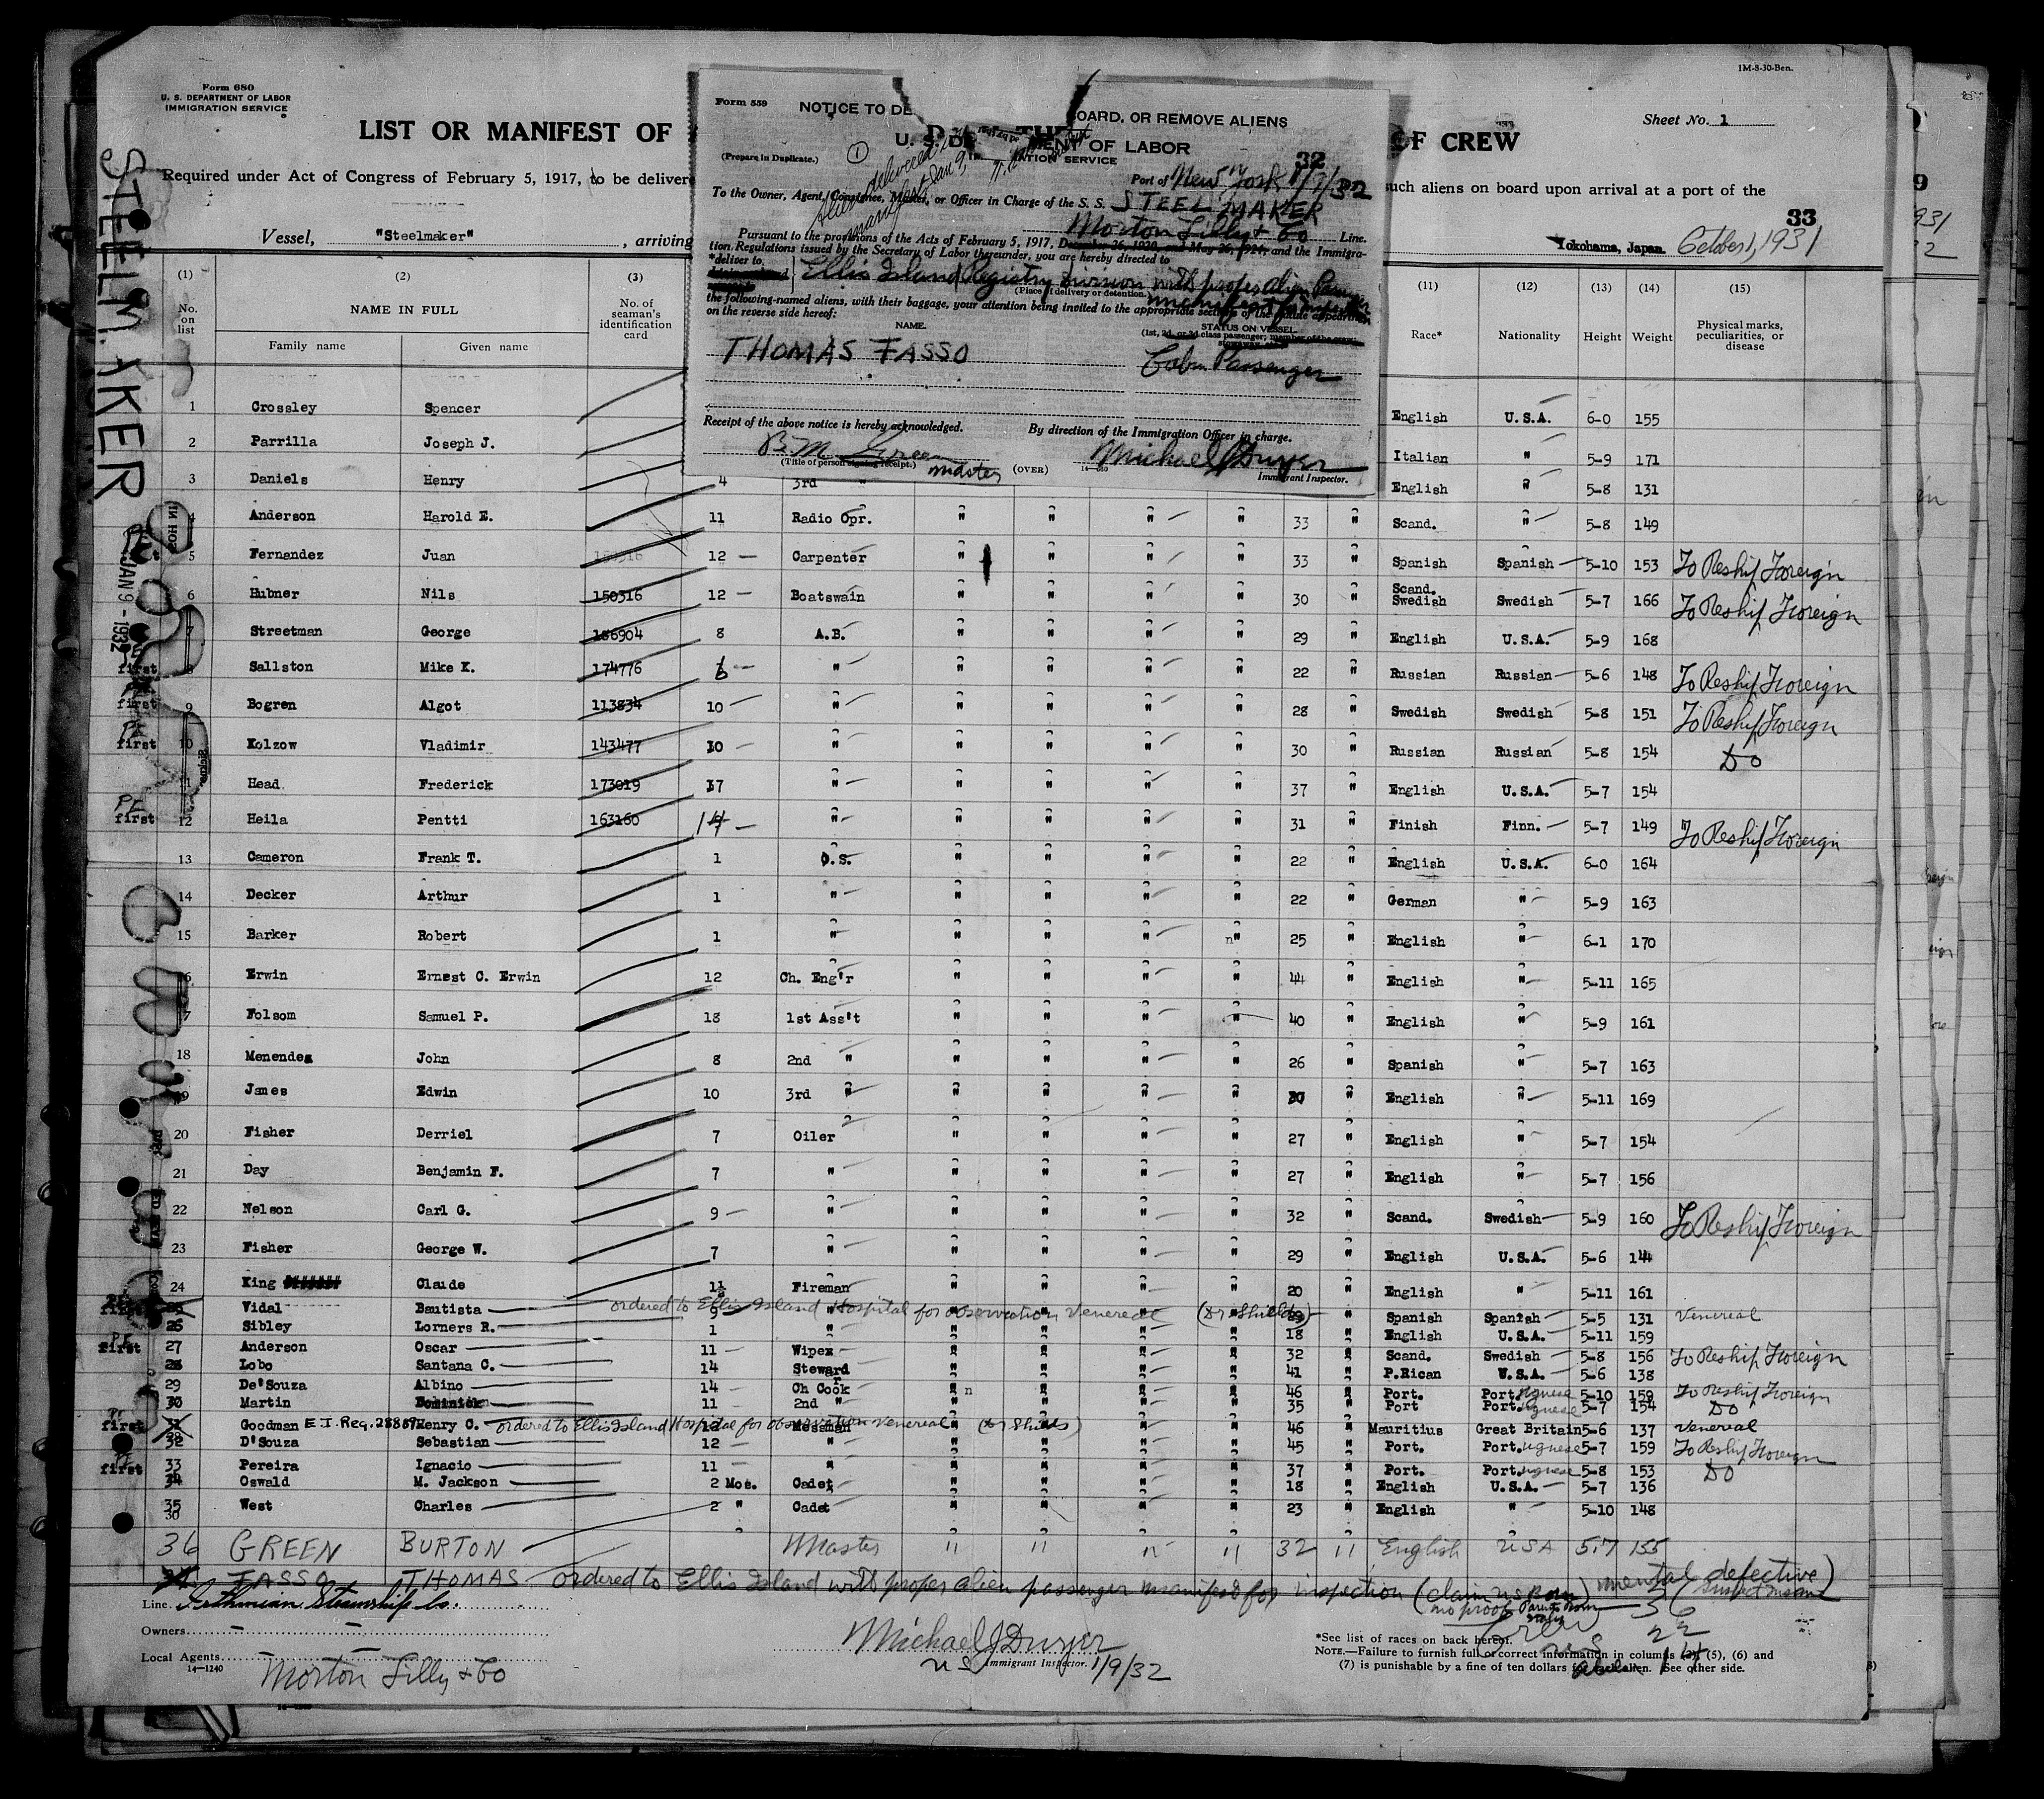 1M-8-30-Ben.
Form 680
U. S. DEPARTMENT OF LABOR
IMMIGRATION SERVICE
Sheet No. 1
LIST OR MANIFEST OF
OF CREW
Required under Act of Congress of February 5, 1917, to be delivere
such aliens on board upon arrival at a port of the
33
Vessel, "Steelmaker", arriving
Yokohama, Japan. October 1, 1931
STEELMAKER
JAN 9 - 1932
Form 559
NOTICE TO DE
BOARD, OR REMOVE ALIENS
U. S. DE MENT OF LABOR
ATION SERVICE
(Prepare in Duplicate.)
1
32
Port of New York 1/9/32
To the Owner, Agent, Consignee, Master, or Officer in Charge of the S. S. STEELMAKER
Morton Lilly & Co Line.
Pursuant to the provisions of the Acts of February 5, 1917, December 26, 1920, and May 26, 1924, and the Immigra-
tion Regulations issued by the Secretary of Labor thereunder, you are hereby directed to
*deliver to
Ellis Island Registry Division with proper alien
(Place of delivery or detention.)
the following-named aliens, with their baggage, your attention being invited to the appropriate sections of the statute appearing
on the reverse side hereof:
NAME.
STATUS ON VESSEL.
(1st, 2d, or 3d class passenger; member of the crew;
THOMAS FASSO
Cabin Passenger
Receipt of the above notice is hereby acknowledged.
By direction of the Immigration Officer in charge.
B. M. Green
Michael J Dwyer
(Title of person signing receipt.) master
(OVER)
Immigrant Inspector.
(1) (2) (3) (11) (12) (13) (14) (15)
No. on list
NAME IN FULL
Family name Given name
No. of seaman's identification card
Race* Nationality Height Weight Physical marks, peculiarities, or disease
1 Crossley Spencer English U.S.A. 6-0 155
2 Parrilla Joseph J. Italian " 5-9 171
3 Daniels Henry 4 3rd " English " 5-8 131
4 Anderson Harold E. 11 Radio Opr. " " " " 33 " Scand. " 5-8 149
5 Fernandez Juan 12 Carpenter " " " " 33 " Spanish Spanish 5-10 153 To Reship Foreign
6 Hubner Nils 150316 12 Boatswain " " " " 30 " Scand. Swedish Swedish 5-7 166 To Reship Foreign
7 Streetman George 156904 8 A.B. " " " " 29 " English U.S.A. 5-9 168
first 8 Sallston Mike K. 174776 6 " " " " " 22 " Russian Russian 5-6 148 To Reship Foreign
first 9 Bogren Algot 113834 10 " " " " " 28 " Swedish Swedish 5-8 151 To Reship Foreign
PE first 10 Kolzow Vladimir 143477 10 " " " " " 30 " Russian Russian 5-8 154 Do
11 Head Frederick 173019 17 " " " " " 37 " English U.S.A. 5-7 154
PE first 12 Heila Pentti 163160 14 " " " " " 31 " Finish Finn. 5-7 149 To Reship Foreign
13 Cameron Frank T. 1 O.S. " " " " 22 " English U.S.A. 6-0 164
14 Decker Arthur 1 " " " " " 22 " German " 5-9 163
15 Barker Robert 1 " " " " n" 25 " English " 6-1 170
16 Erwin Ernest C. Erwin 12 Ch. Eng'r " " " " 44 " English " 5-11 165
17 Folsom Samuel P. 18 1st Ass't " " " " 40 " English " 5-9 161
18 Menendez John 8 2nd " " " " " 26 " Spanish " 5-7 163
19 James Edwin 10 3rd " " " " " " English " 5-11 169
20 Fisher Derriel 7 Oiler " " " " 27 " English " 5-7 154
21 Day Benjamin F. 7 " " " " " 27 " English " 5-7 156
22 Nelson Carl G. 9 " " " " " 32 " Scand. Swedish 5-9 160 To Reship Foreign
23 Fisher George W. 7 " " " " " 29 " English U.S.A. 5-6 144
24 King Claude Fireman " " " " 20 " English " 5-11 161
first Vidal Bautista ordered to Ellis Island Hospital for observation Venereal (Dr Shields) " Spanish Spanish 5-5 131 Venereal
26 Sibley Lorners R. 1 " " " " " 18 " English U.S.A. 5-11 159
PE first 27 Anderson Oscar 11 Wiper " " " " 32 " Scand. Swedish 5-8 156 To Reship Foreign
28 Lobo Santana C. 14 Steward " " " " 41 " P.Rican U.S.A. 5-6 138
29 De'Souza Albino 14 Ch Cook " n " " " 46 " Port. Portuguese 5-10 159 To Reship Foreign
30 Martin Dominick 11 2nd " " " " " 35 " Port Portuguese 5-7 154 Do
PE first 31 Goodman E.I. Reg. Henry C. ordered to Ellis Island Hospital for observation Venereal (Dr Shields) Messman 46 " Mauritius Great Britain 5-6 137 Venereal
32 D'Souza Sebastian 12 " " " " " 45 " Port. Portuguese 5-7 159 To Reship Foreign
PE first 33 Pereira Ignacio 11 " " " " " 37 " Port. Portuguese 5-8 153 Do
34 Oswald M. Jackson 2 Mos. Cadet " " " " 18 " English U.S.A. 5-7 136
35 West Charles 2 " Cadet " " " " 23 " English " 5-10 148
30
36 GREEN BURTON Master " " " " 32 " English USA 5.7 155
FASSO THOMAS ordered to Ellis Island with proper alien passenger manifest for inspection (claim US Born) mental defective)
no proof Parents Born Italy
Line Isthmian Steamship Co.
Owners
Local Agents Morton Lilly & Co
14—1240
Michael J Dwyer
US Immigrant Inspector. 1/9/32
Crew 36
USC 22
Alien 14
*See list of races on back hereof.
NOTE.—Failure to furnish full or correct information in columns (3), (5), (6) and
(7) is punishable by a fine of ten dollars for each alien. See other side.